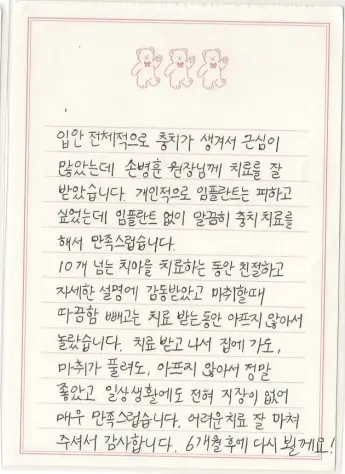 입안 전체적으로 충치가 생겨서 근심이
많았는데 손병훈 원장님께 치료를 잘
받았습니다. 개인적으로 임플란트는 피하고
싶었는데 임플란트 없이 말끔히 충치 치료를
해서 만족스럽습니다.
10개 넘는 치아를 치료하는 동안 친절하고
자세한 설명에 감동받았고 마취할때
따끔함 빼고는 치료 받는 동안 아프지 않아서
놀랐습니다. 치료 받고 나서 집에 가도,
마취가 풀려도, 아프지 않아서 정말
좋았고 일상생활에도 전혀 지장이 없어
매우 만족스럽습니다. 어려운 치료 잘 마쳐
주셔서 감사합니다. 6개월 후에 다시 뵐께요!